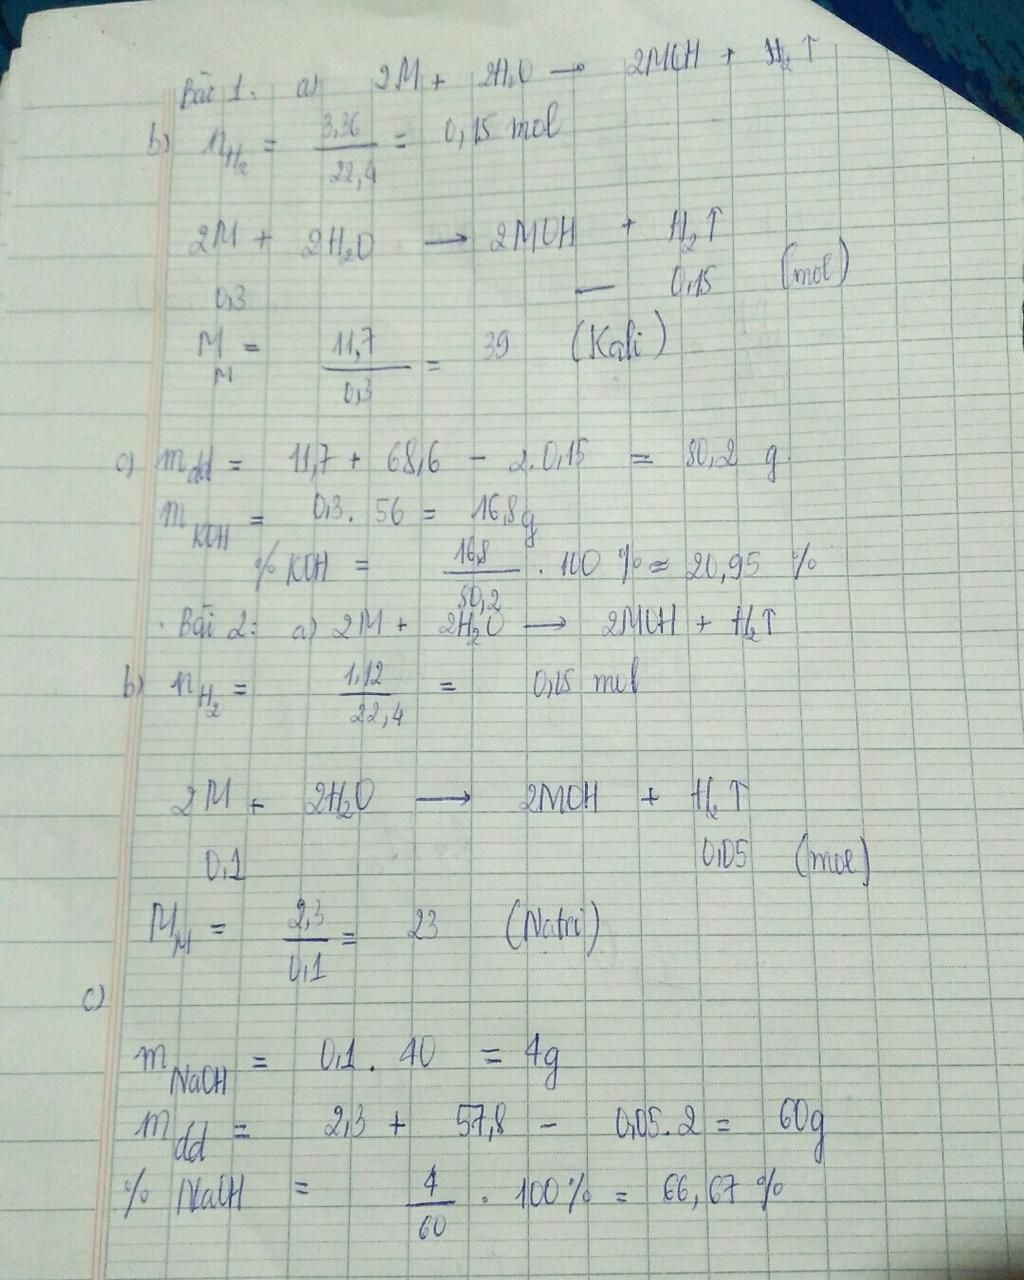 Bài 1: a) 2M + 2H₂O → 2MOH + H₂↑
b) n_H₂ = 3,36/22,4 = 0,15 mol
2M + 2H₂O → 2MOH + H₂↑
0,3 — 0,15 (mol)
M_M = 11,7/0,3 = 39 (Kali)
c) m_dd = 11,7 + 68,6 - 2.0,15 = 80,2 g
m_KOH = 0,3. 56 = 16,8g
% KOH = 16,8/80,2 . 100 % ≈ 20,95 %
Bài 2: a) 2M + 2H₂O → 2MOH + H₂↑
b) n_H₂ = 1,12/22,4 = 0,15 mol
2M + 2H₂O → 2MOH + H₂↑
0,1 0,05 (mol)
M_M = 2,3/0,1 = 23 (Natri)
c)
m_NaOH = 0,1. 40 = 4g
m_dd = 2,3 + 57,8 - 0,05.2 = 60g
% NaOH = 4/60 . 100% = 66,67 %